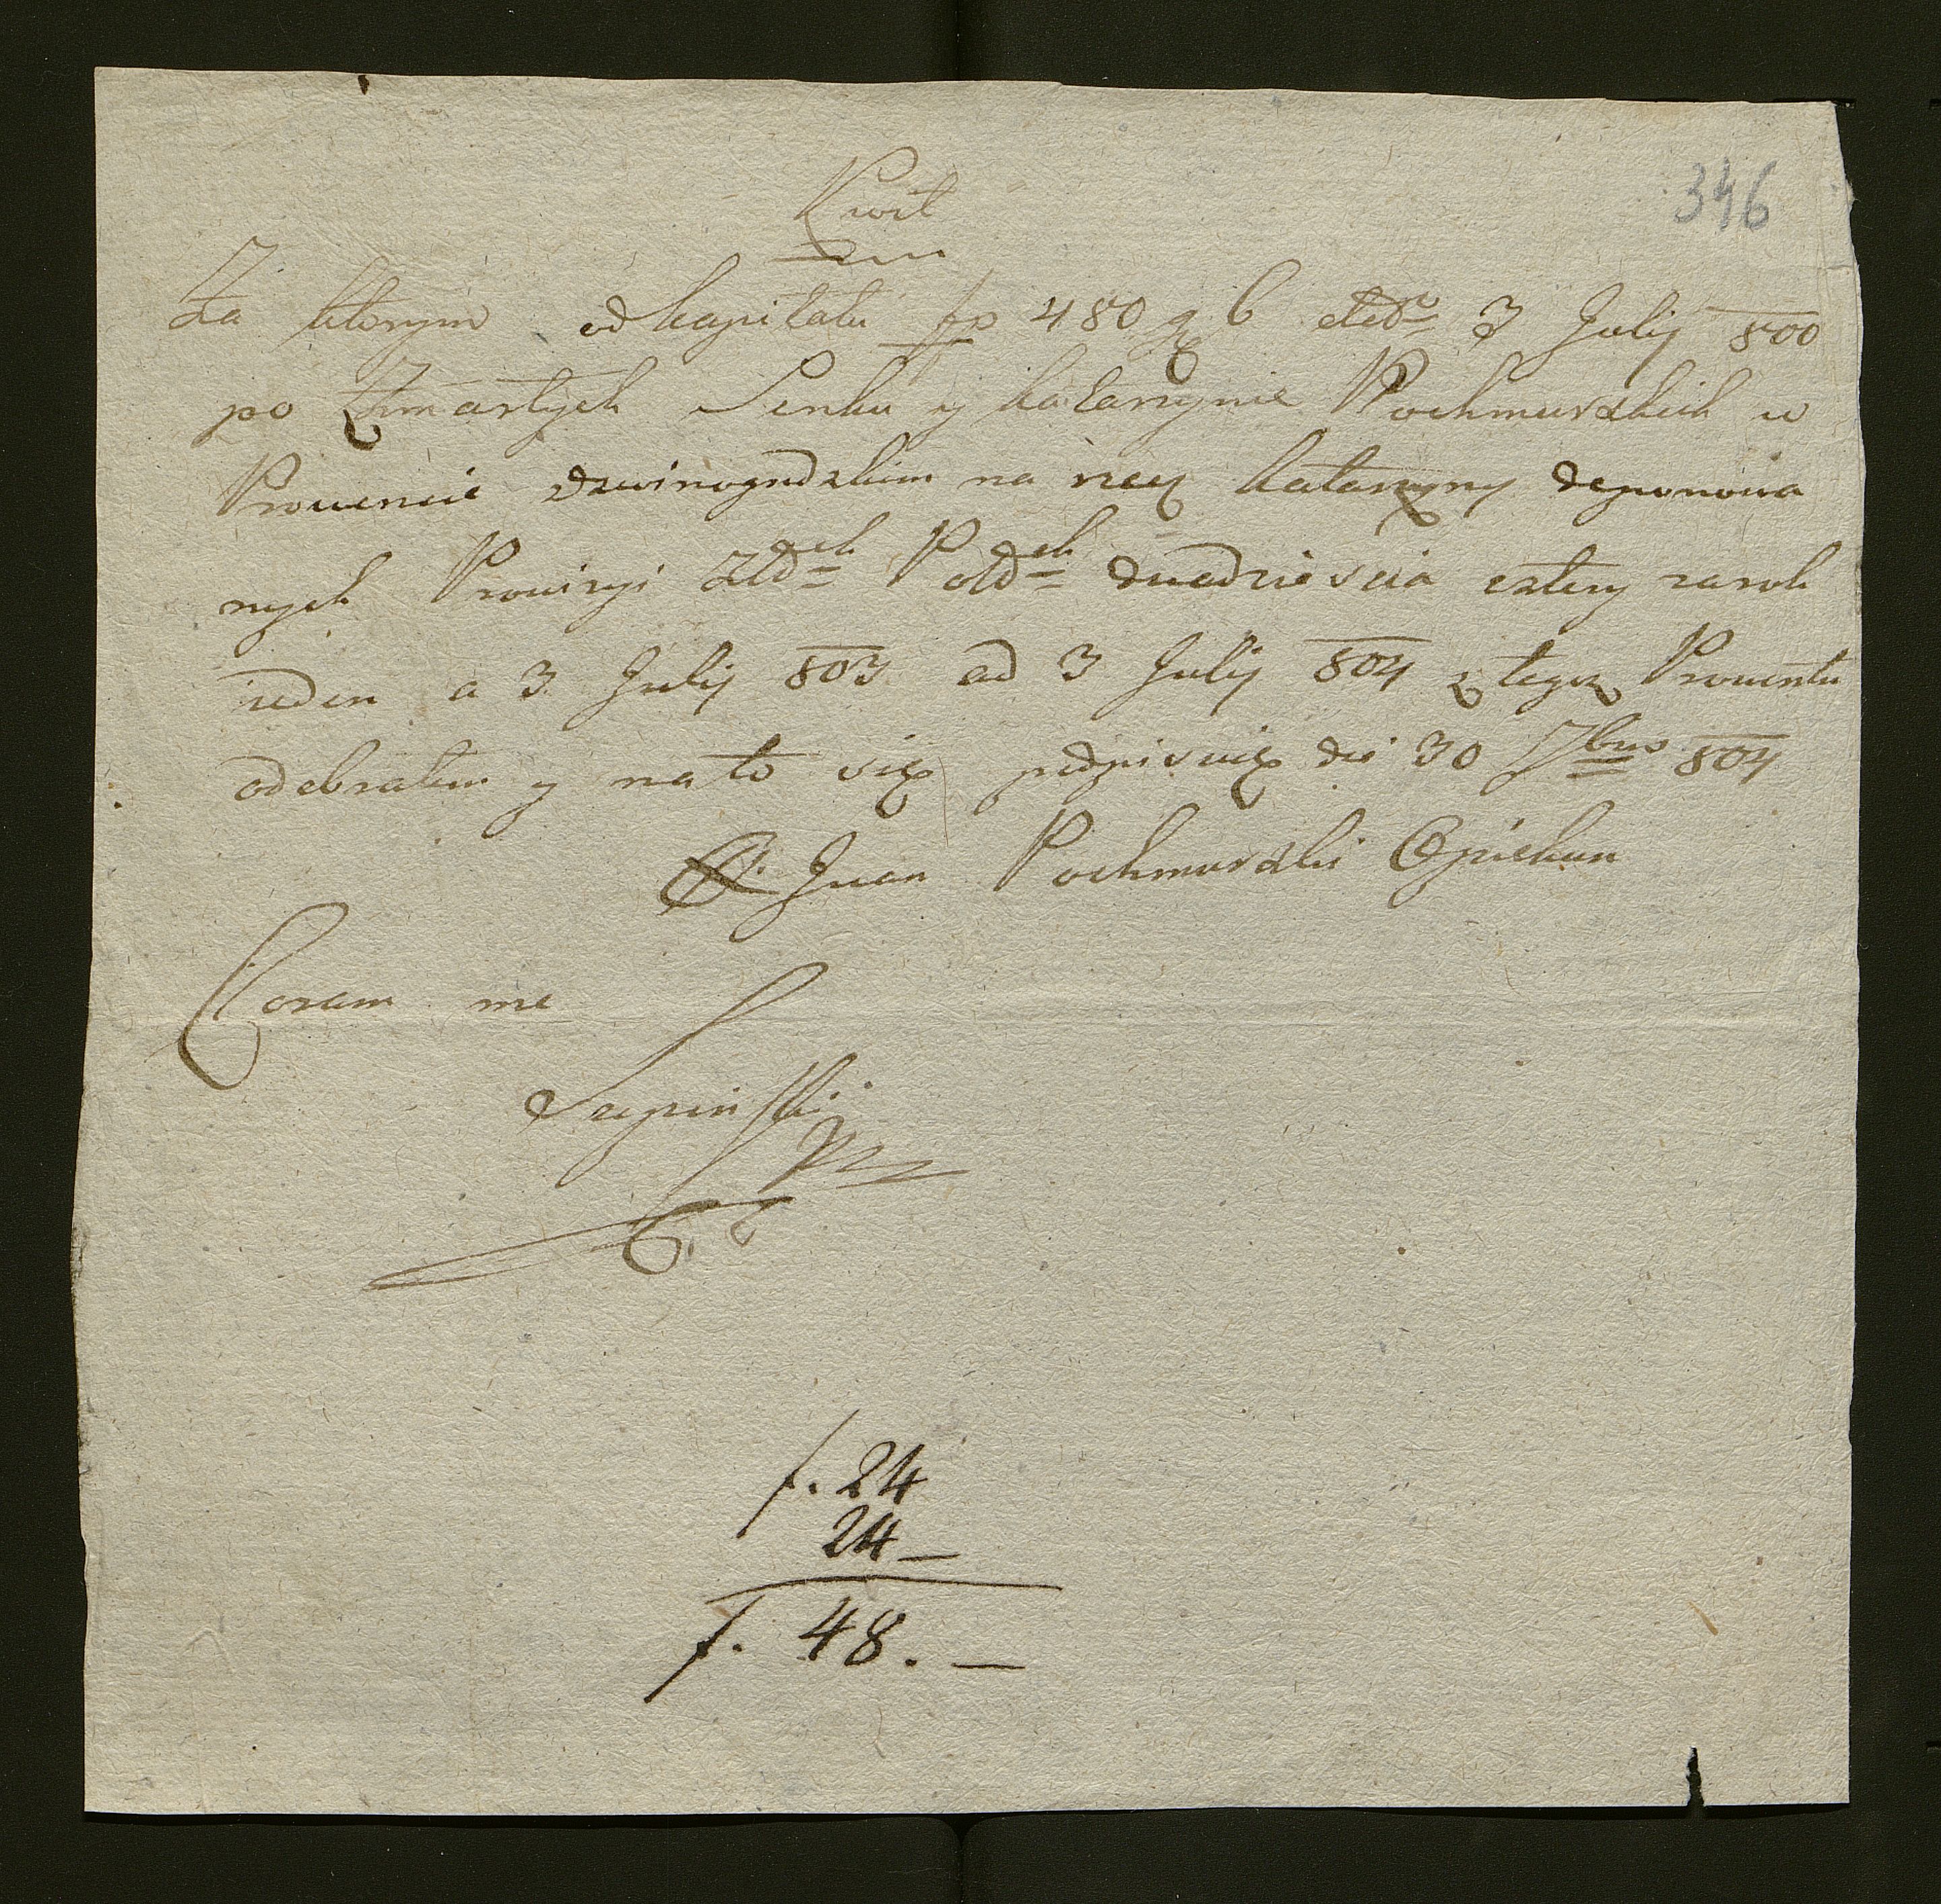 346
Kwit
Za ktorym od kapitału fp 480 g 6 3 Julij 800
po Zmarłych Senku y katarzynie Pochmurskich w
Prowencie dzwinogrodzkim na rzecz katarzyny deponowa
nych Prowizyi Złdch Poldch dwadziescia cztery za rok
ieden a 3 Julij 803 ad 3 Julij 804 z tegoz Prowentu
odebrałem y na to się podpisuię die 30 7bris 804
Iwan Pochmurski Opiekun
Coram me
f. 24
24 —
f. 48. —